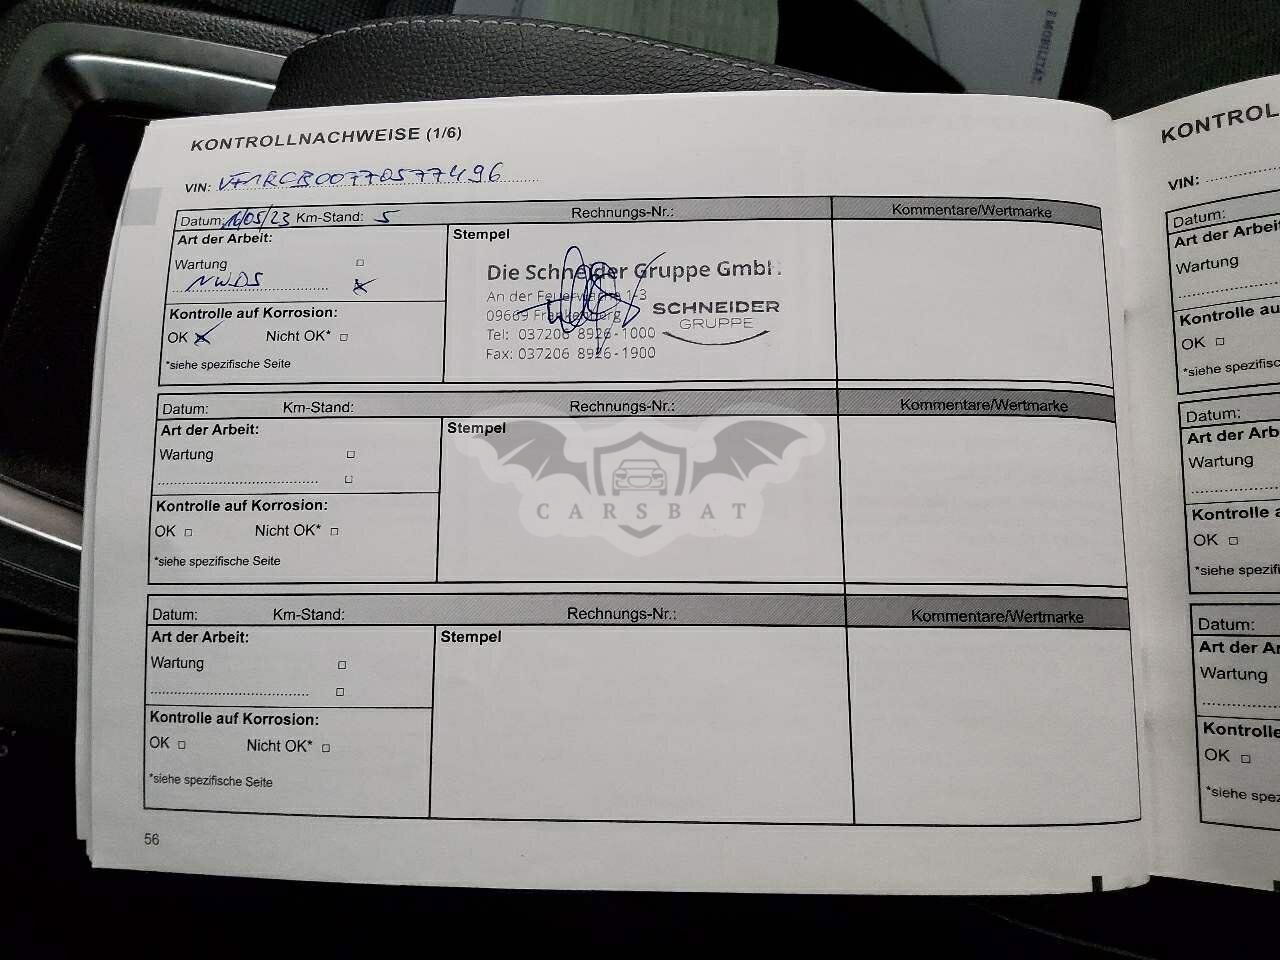 E MOBILITÄT
KONTROLLNACHWEISE (1/6)
VIN: VF1RCB00770577496
Datum: 16/05/23 Km-Stand: 5 Rechnungs-Nr.: Kommentare/Wertmarke
Art der Arbeit: Stempel
Wartung □
NWDS
Kontrolle auf Korrosion:
OK Nicht OK* □
*siehe spezifische Seite
Die Schneider Gruppe GmbH
An der Feuerwache 1-3
09669 Frankenberg
Tel: 037206 8926-1000
Fax: 037206 8926-1900
SCHNEIDER
GRUPPE
Datum: Km-Stand: Rechnungs-Nr.: Kommentare/Wertmarke
Art der Arbeit: Stempel
Wartung □
.......................................... □
Kontrolle auf Korrosion:
OK □ Nicht OK* □
*siehe spezifische Seite
CARSBAT
Datum: Km-Stand: Rechnungs-Nr.: Kommentare/Wertmarke
Art der Arbeit: Stempel
Wartung □
.......................................... □
Kontrolle auf Korrosion:
OK □ Nicht OK* □
*siehe spezifische Seite
56
KONTROL
VIN:
Datum:
Art der Arbei
Wartung
Kontrolle au
OK □
*siehe spezifisc
Datum:
Art der Arb
Wartung
Kontrolle a
OK □
*siehe spezifi
Datum:
Art der Ar
Wartung
Kontrolle
OK □
*siehe spez